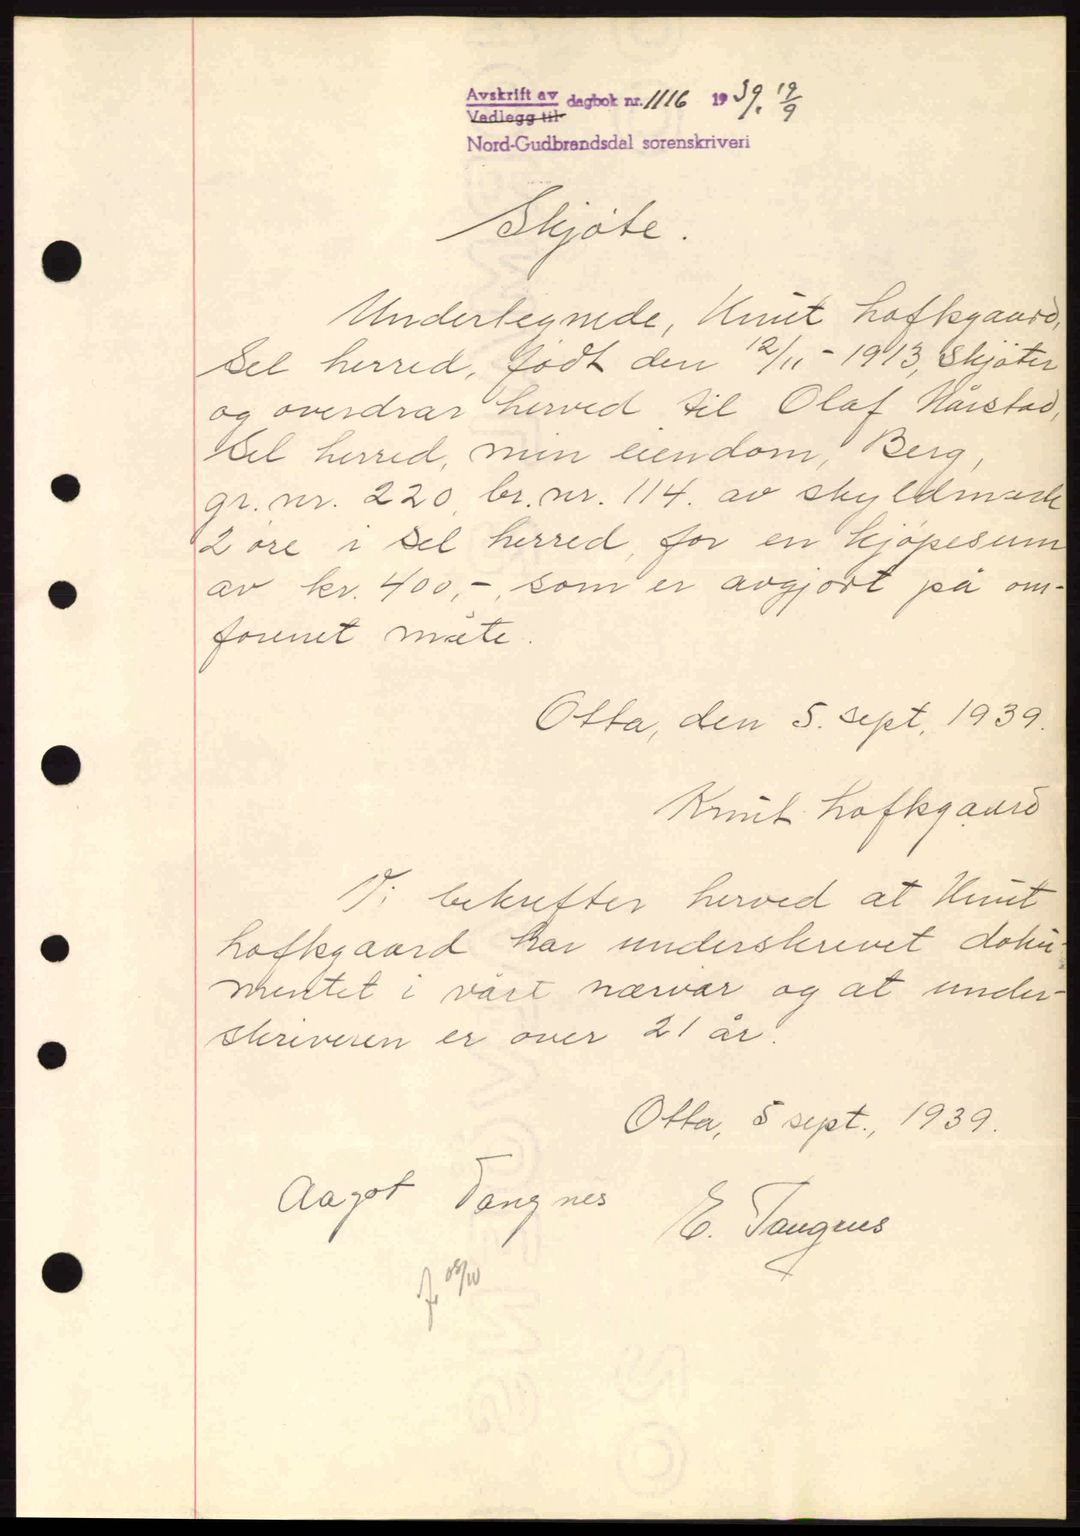 Avskrift av dagbok nr. 1116 1939. 19/9
Vedlegg til
Nord-Gudbrandsdal sorenskriveri
Skjøte.
Undertegnede, Knut Lofkgaard,
Sel herred, født den 12/11 - 1913, skjøter
og overdrar herved til Olaf Hårstad,
Sel herred, min eiendom, Berg,
gr. nr. 220, br. nr. 114. av skyldmark
2 øre i Sel herred, for en kjøpesum
av kr. 400,-, som er avgjort på om-
forenet måte.
Otta, den 5. sept. 1939.
Knut Lofkgaard
Vi bekrefter herved at Knut
Lofkgaard har underskrevet doku-
mentet i vårt nærvær og at under-
skriveren er over 21 år.
Otta, 5 sept., 1939.
Aagot Tangnes E. Tangnes